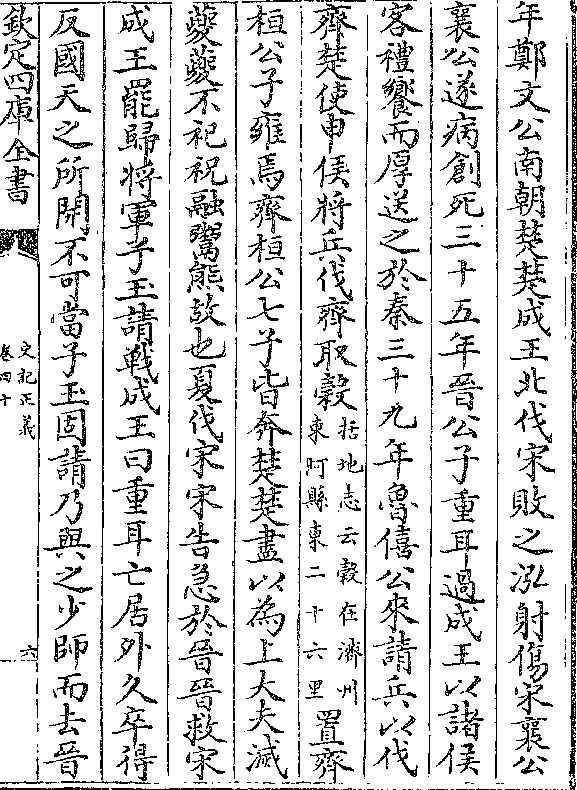 年鄭文公南朝楚楚成王北伐宋敗之泓射傷宋襄公
襄公遂病創死三十五年晉公子重耳過成王以諸侯
客禮饗而厚送之於秦三十九年魯僖公來請兵以伐
齊楚使申侯將兵伐齊取糓括地志云糓在濟州東阿縣東二十六里置齊
桓公子雍焉齊桓公七子皆奔楚楚盡以為上大夫滅
夔夔不祀祝融鬻熊故也夏伐宋宋告急於晉晉救宋
成王罷歸將軍子玉請戰成王曰重耳亡居外久卒得
反國天之所開不可當子玉固請乃與之少師而去晉
欽定四庫全書
史記正義
卷四十
六